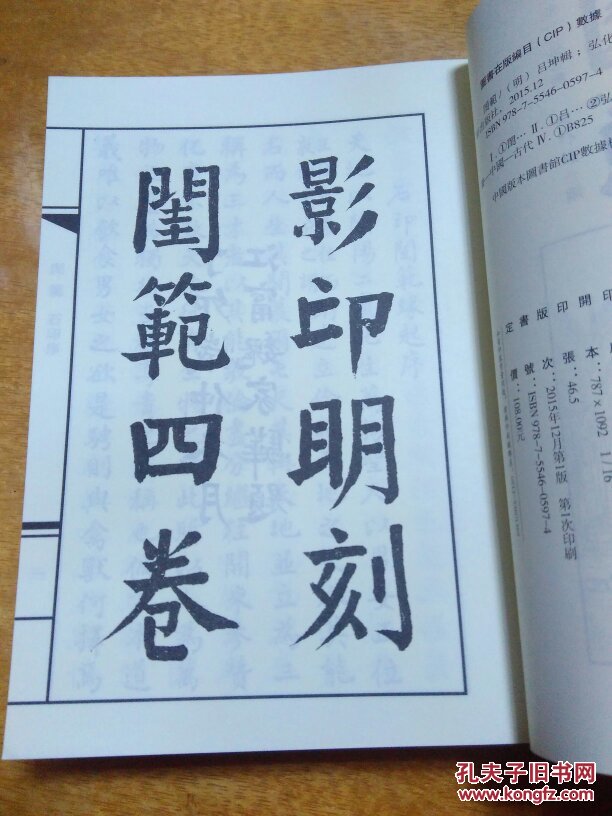 影印明刻
閨範四卷
圖書在版編目（CIP）數據
閨範/（明）吕坤輯；弘化
版社，2015.12
ISBN 978-7-5546-0597-4
Ⅰ.①閨… Ⅱ.①吕…②弘
中國—古代 Ⅳ.①B825
中國版本圖書館CIP數據核
開 本：787×1092 1/16
印 張：46.5
版 次：2015年12月第1版 第1次印刷
書 號：ISBN 978-7-5546-0597-4
定 價：168.00元
孔夫子旧书网
www.kongfz.com